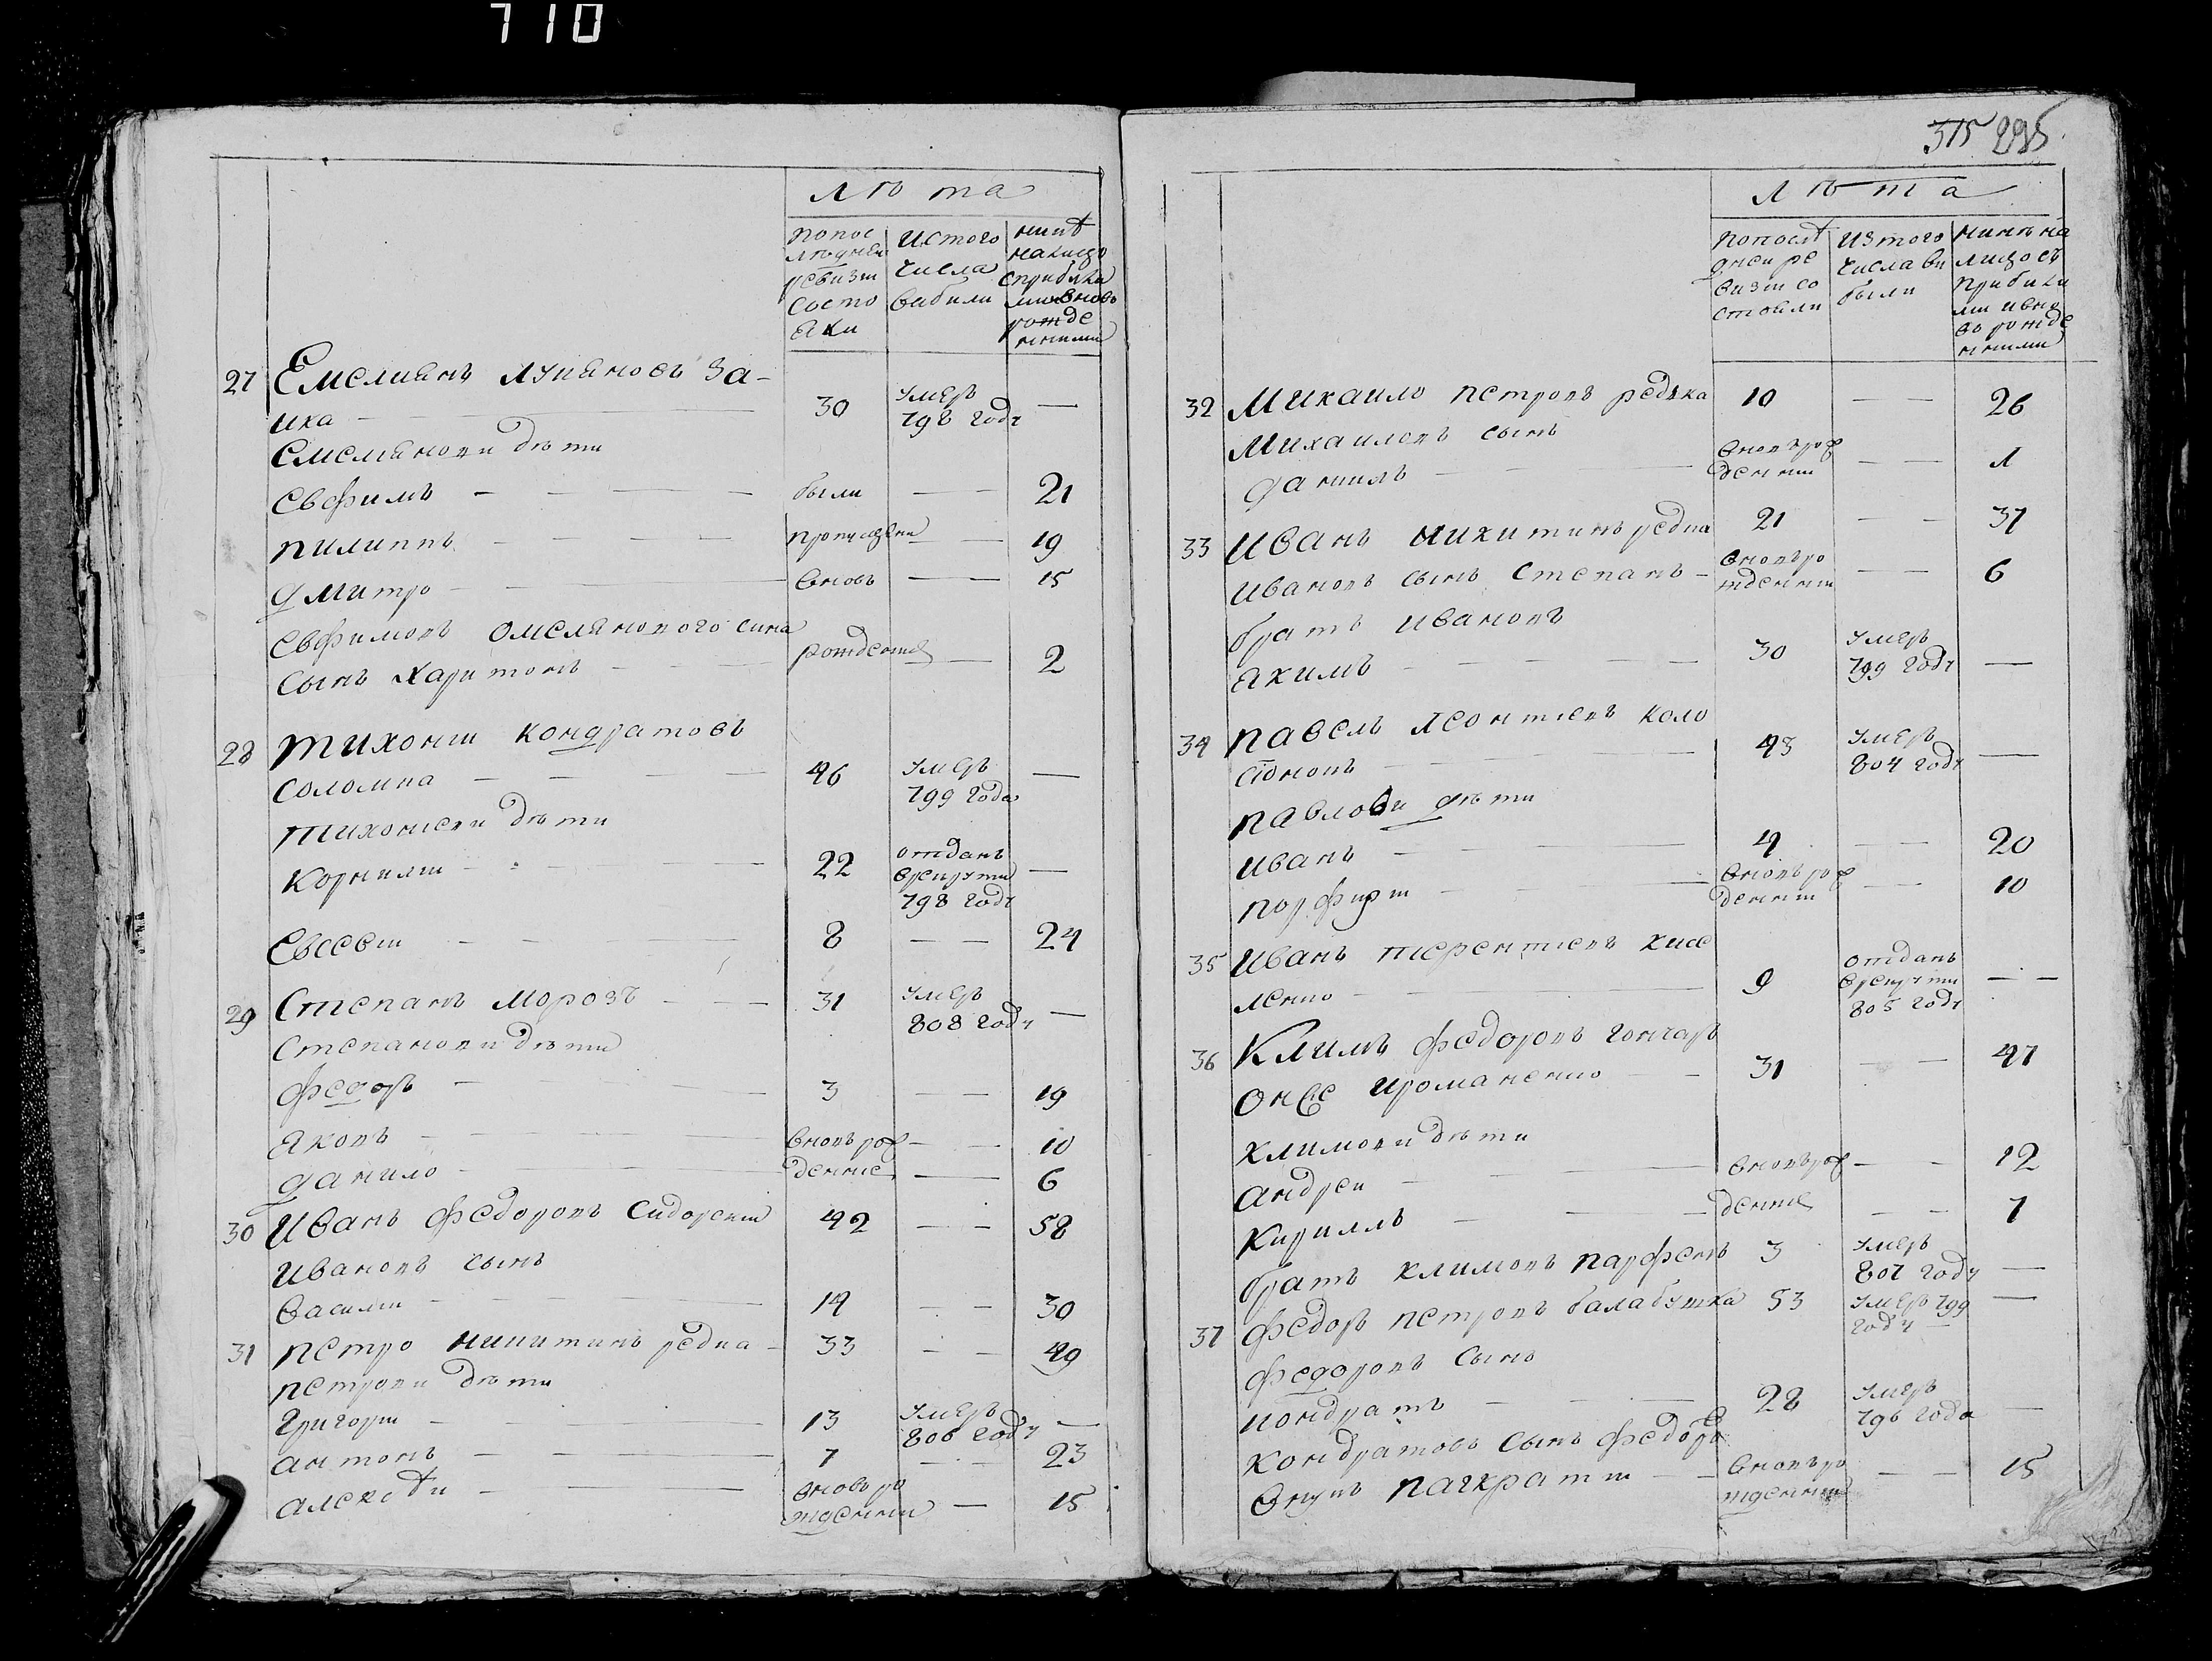 710
лѣта
по пос
лѣдней
ревизи
состо
яли
ис того
числа
выбыли
нинѣ
на лицо
с прибыла
ми и вновь
рожде
нними
27 Емелиянъ Лукяновъ За-
ика — 30 умеръ 798 году —
Емеляновы дѣти
Евфимъ — были — 21
Пилиппъ — пропущени — 19
Дмитро — вновь — 15
Евфимовъ Омелянового сина
сынъ Харитонъ — рожденние — 2
28 Тихоний Кондратовъ
Соломка — 46 умеръ 799 года —
Тихониеви дѣти
Корнилии — 22 отданъ в рекруты 798 году —
Евсевии — 8 — 24
29 Степанъ Морозъ — 31 умеръ 808 году —
Степанови дѣти
Федоръ — 3 — 19
Яковъ — вновь рож — 10
Данило — денние — 6
30 Иванъ Федоровъ Сидорский 42 — 58
Ивановъ сынъ
Василии — 14 — 30
31 Петро Никитинъ Редка — 33 — 49
Петрови дѣти
Григории — 13 умеръ 806 году —
Антонъ — 7 — 23
Алексѣи — вновь ро
жденни — 15
315 295
лѣта
по послѣ
дней ре
визи со
стояли
из того
числа вы
были
нинѣ на
лицо съ
прибыли
ми и вно
во рожде
нними
32 Михаило Петровъ Редка 10 — 26
Михаиловъ сынъ
Даниилъ — вновъ рож
денни — 1
33 Иванъ Никитинъ Редка 21 — 37
Ивановъ сынъ Степанъ — вновъ ро
жденни — 6
братъ Ивановъ
Якимъ — 30 умеръ 799 году —
34 Павелъ Леонтиевъ Коло
— 43 умеръ 804 году —
Павлови дѣти
Иванъ — 4 — 20
Порфирии — вновъ рож
денни — 10
35 Иванъ Терентиевъ Кисе
ленко — 9 отданъ в рекруты 805 году —
36 Климъ Федоровъ Гончаръ
онже Ироманенко — 31 — 47
Климови дѣти
Андреи — вновъ рож — 12
Кириллъ — денние — 7
братъ Климовъ Парфенъ 3 умеръ 807 году —
37 Федоръ Петровъ Балабушка 53 умеръ 799 году —
Федоровъ сынъ
Кондратъ — 28 умеръ 796 года —
Кондратовъ сынъ Федоро
внукъ Панкратии — вновъ ро
жденний — 15